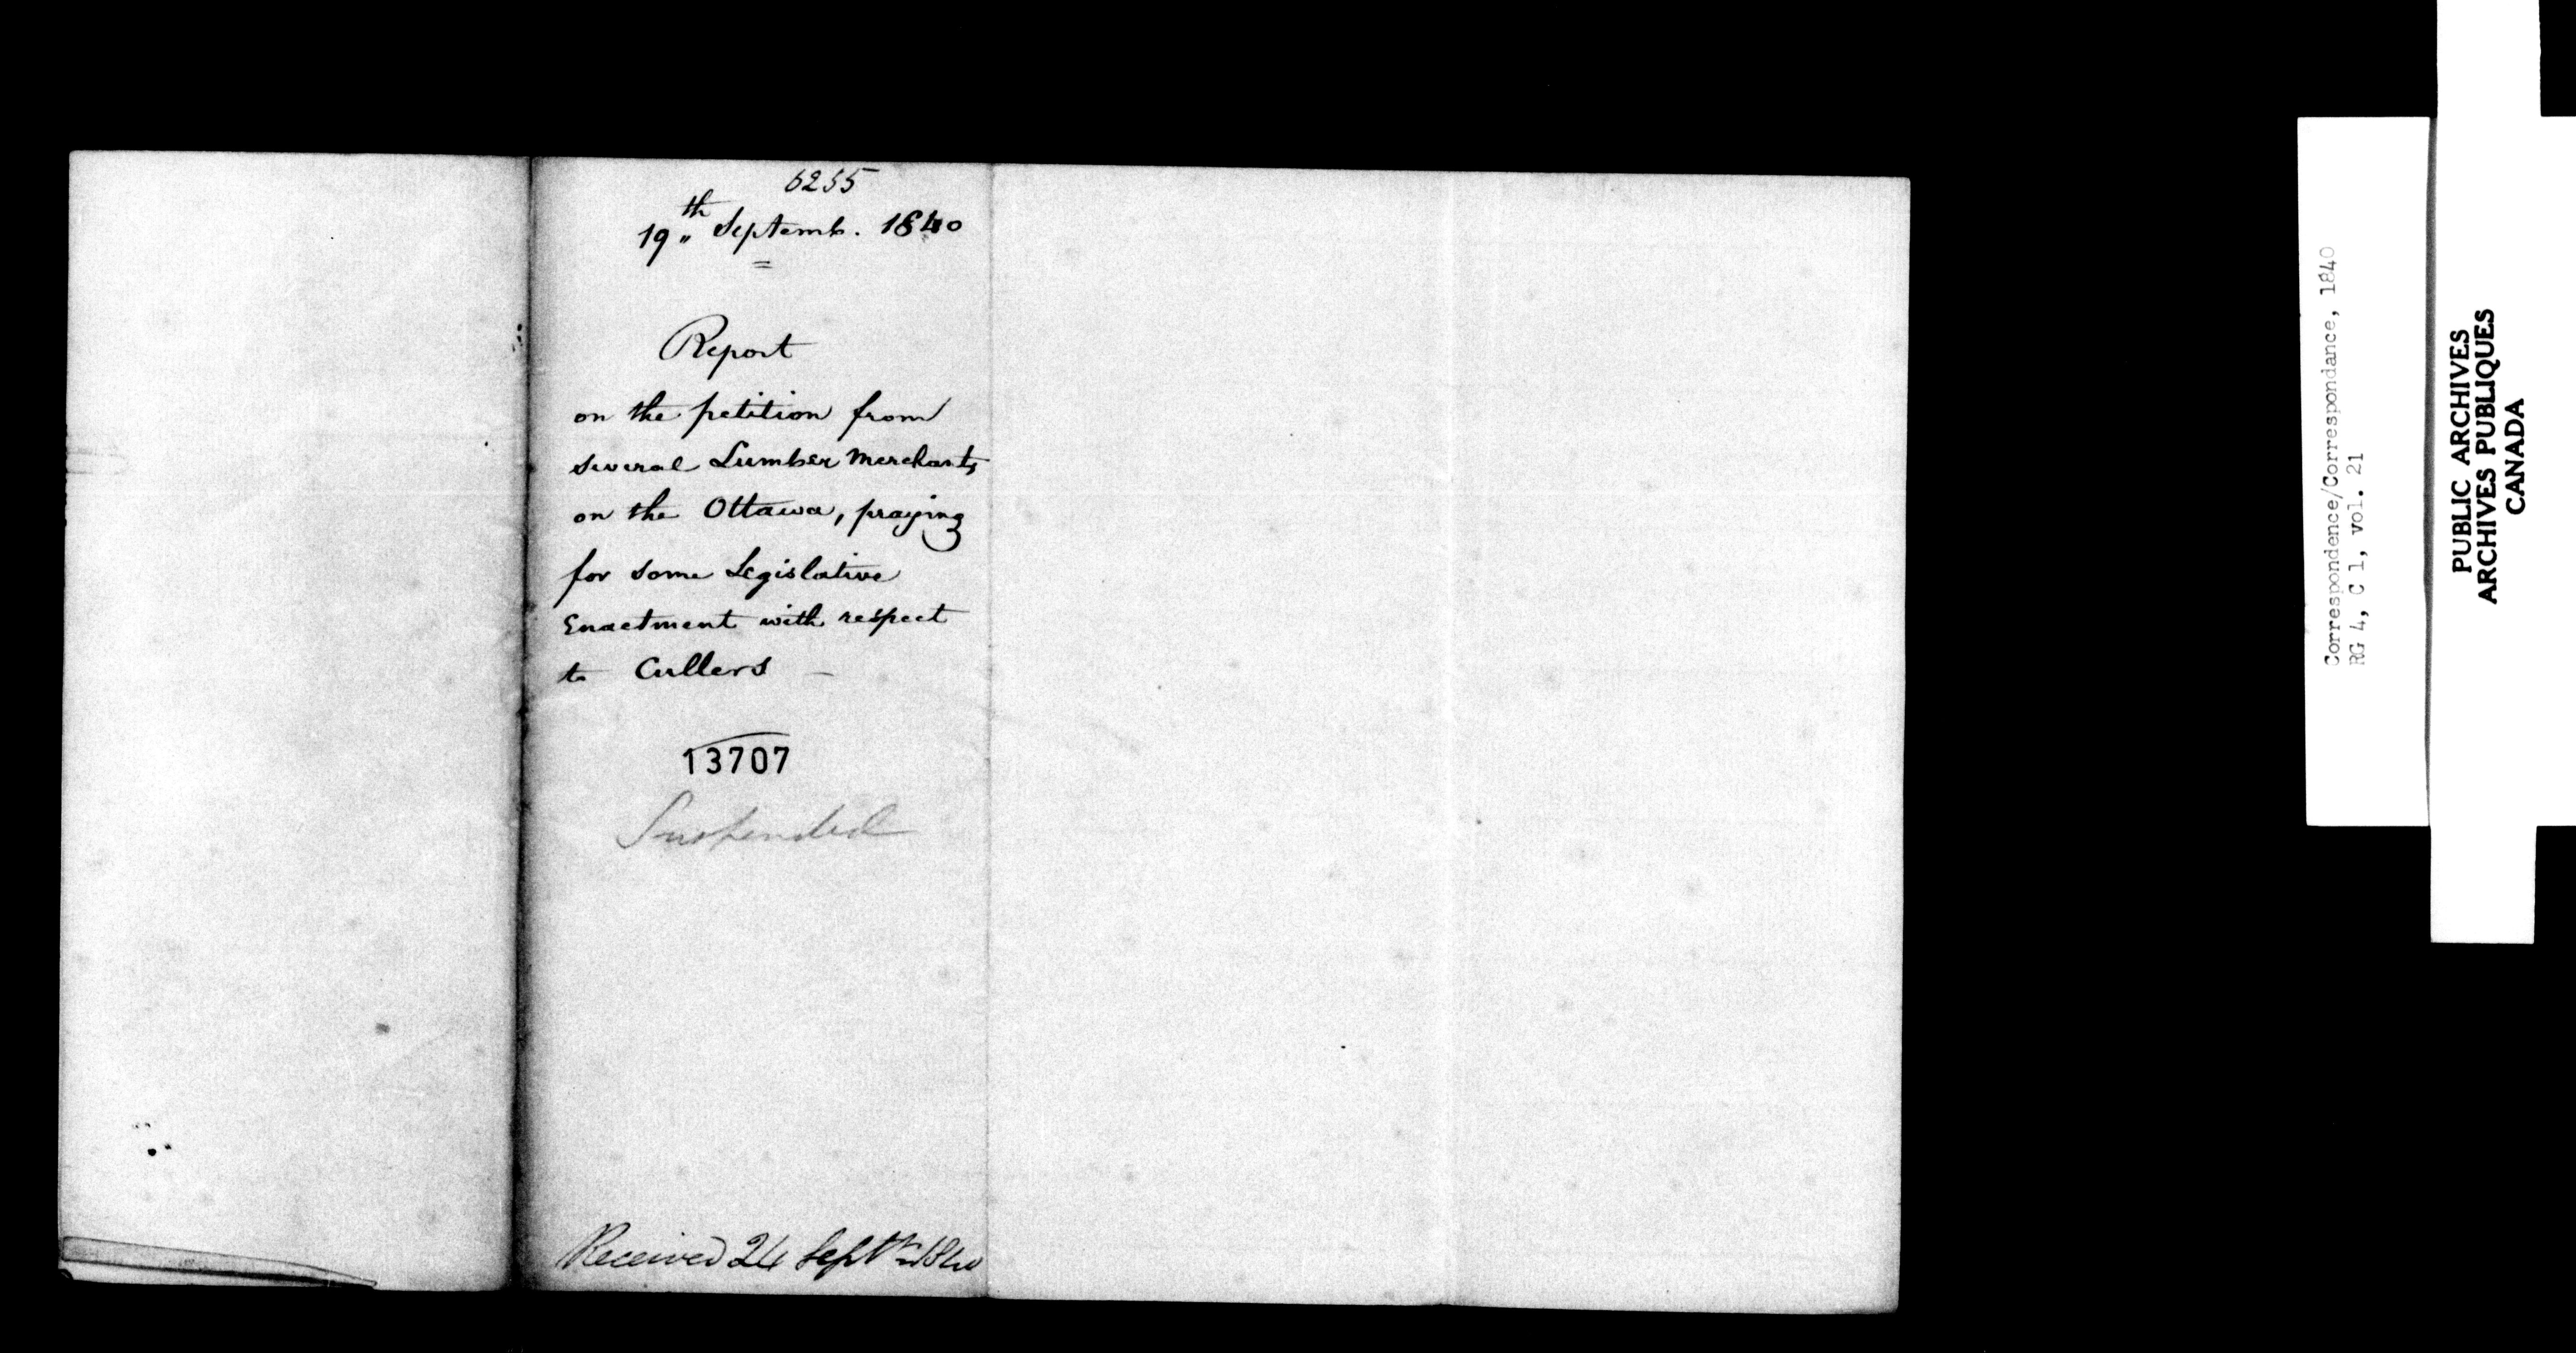 6255
19th Septemb. 1840
Report
on the petition from
several Lumber Merchants
on the Ottawa, praying
for some Legislative
Enactment with respect
to Cullers —
13707
Suspended
Received 24 Septr 1840
Correspondence/Correspondance, 1840
RG 4, C 1, vol. 21
PUBLIC ARCHIVES
ARCHIVES PUBLIQUES
CANADA